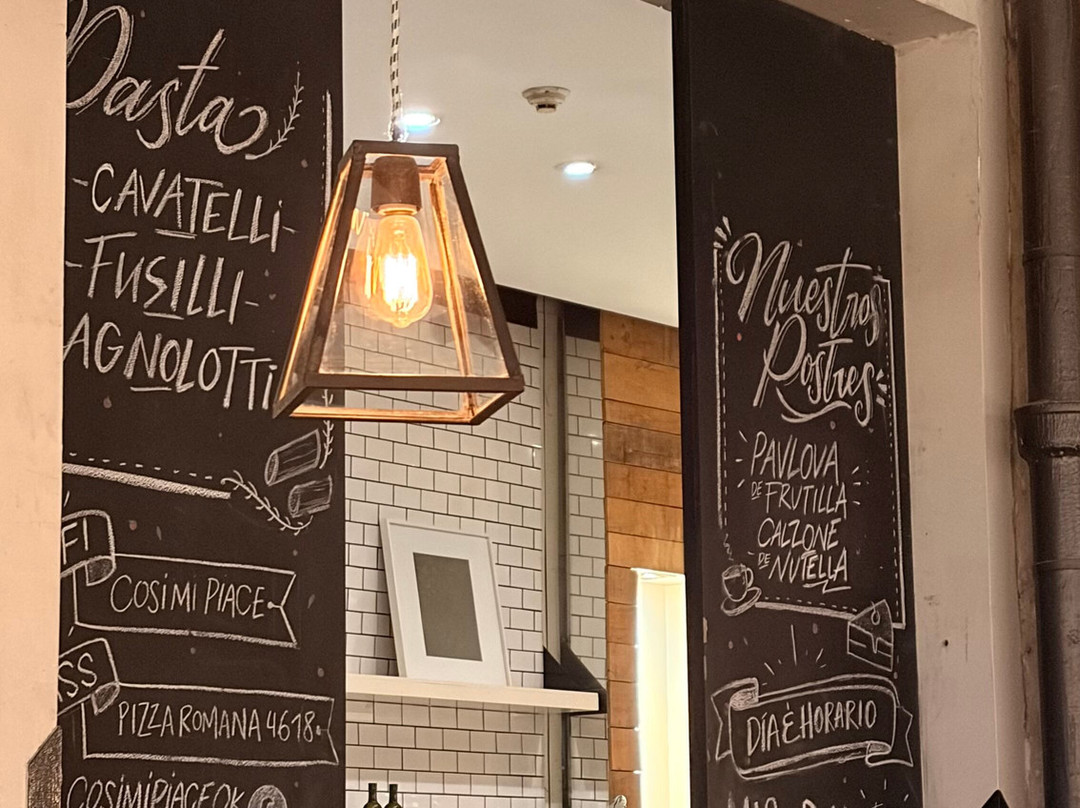 Pasta
-CAVATELLI-
-FUSILLI-
AGNOLOTTI
COSIMI PIACE
PIZZA ROMANA 4618
COSIMIPIACEOK
Nuestros
Postres
PAVLOVA
DE FRUTILLA
CALZONE
DE NUTELLA
DÍA È HORARIO